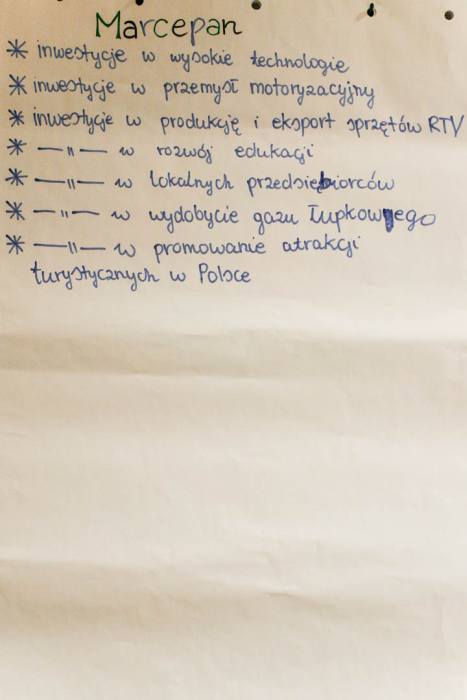 Marcepan
* inwestycje w wysokie technologie
* inwestycje w przemysł motoryzacyjny
* inwestycje w produkcję i eksport sprzętów RTV
* —"— w rozwój edukacji
* —"— w lokalnych przedsiębiorców
* —"— w wydobycie gazu łupkowego
* —"— w promowanie atrakcji
turystycznych w Polsce